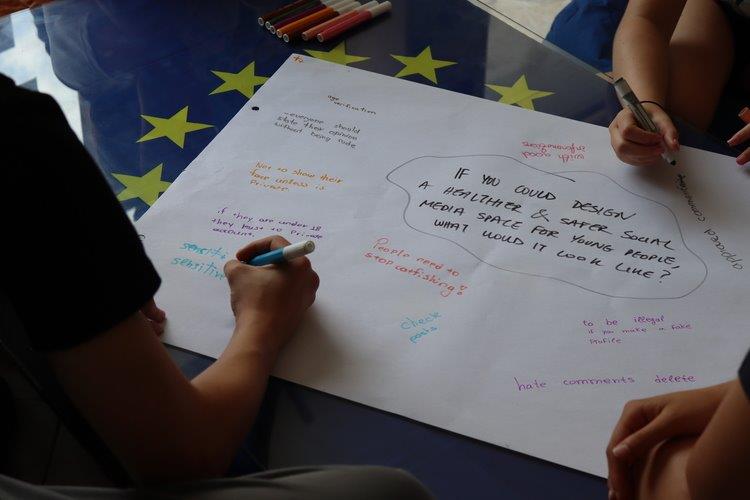 age
verification
everyone should
state their opinion
without being rude
Not to show their
face unless is
Private
if they are under 18
they must to private
account.
sensiti
sensitive
IF YOU COULD DESIGN
A HEALTHIER & SAFER SOCIAL
MEDIA SPACE FOR YOUNG PEOPLE,
WHAT WOULD IT LOOK LIKE?
People need to
stop catfishing!
check
posts
to be illegal
if you make a fake
Profile
hate comments delete
with good